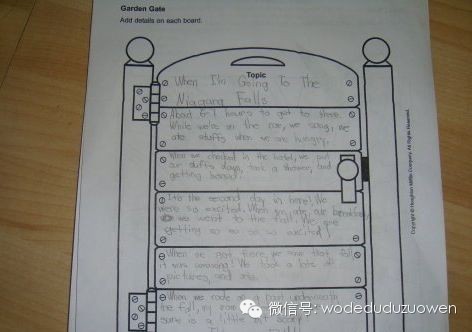 Garden Gate
Add details on each board.
Topic
When I'm Going To The
Niagara Falls
About 6-7 hours to get to there.
While we're in the car, we sang, we
ate stuffs when we are hungry.
When we checked in the hotel, we put
our stuffs down, took a shower, and
getting
It's the second day in here! We
were so excited. When
we went to the fall. We are
getting so so so so excited!
When we got there, we saw that fall,
it was amazing! We took a lots of
pictures, and
When we rode a boat underneath
the fall, my
sure is a little
Copyright © Houghton Mifflin Company. All Rights Reserved.
微信号: wodeduduzuowen